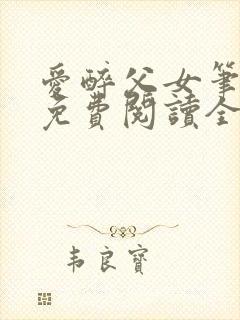 愛醉父女筆
免費閱讀全
韦良寶